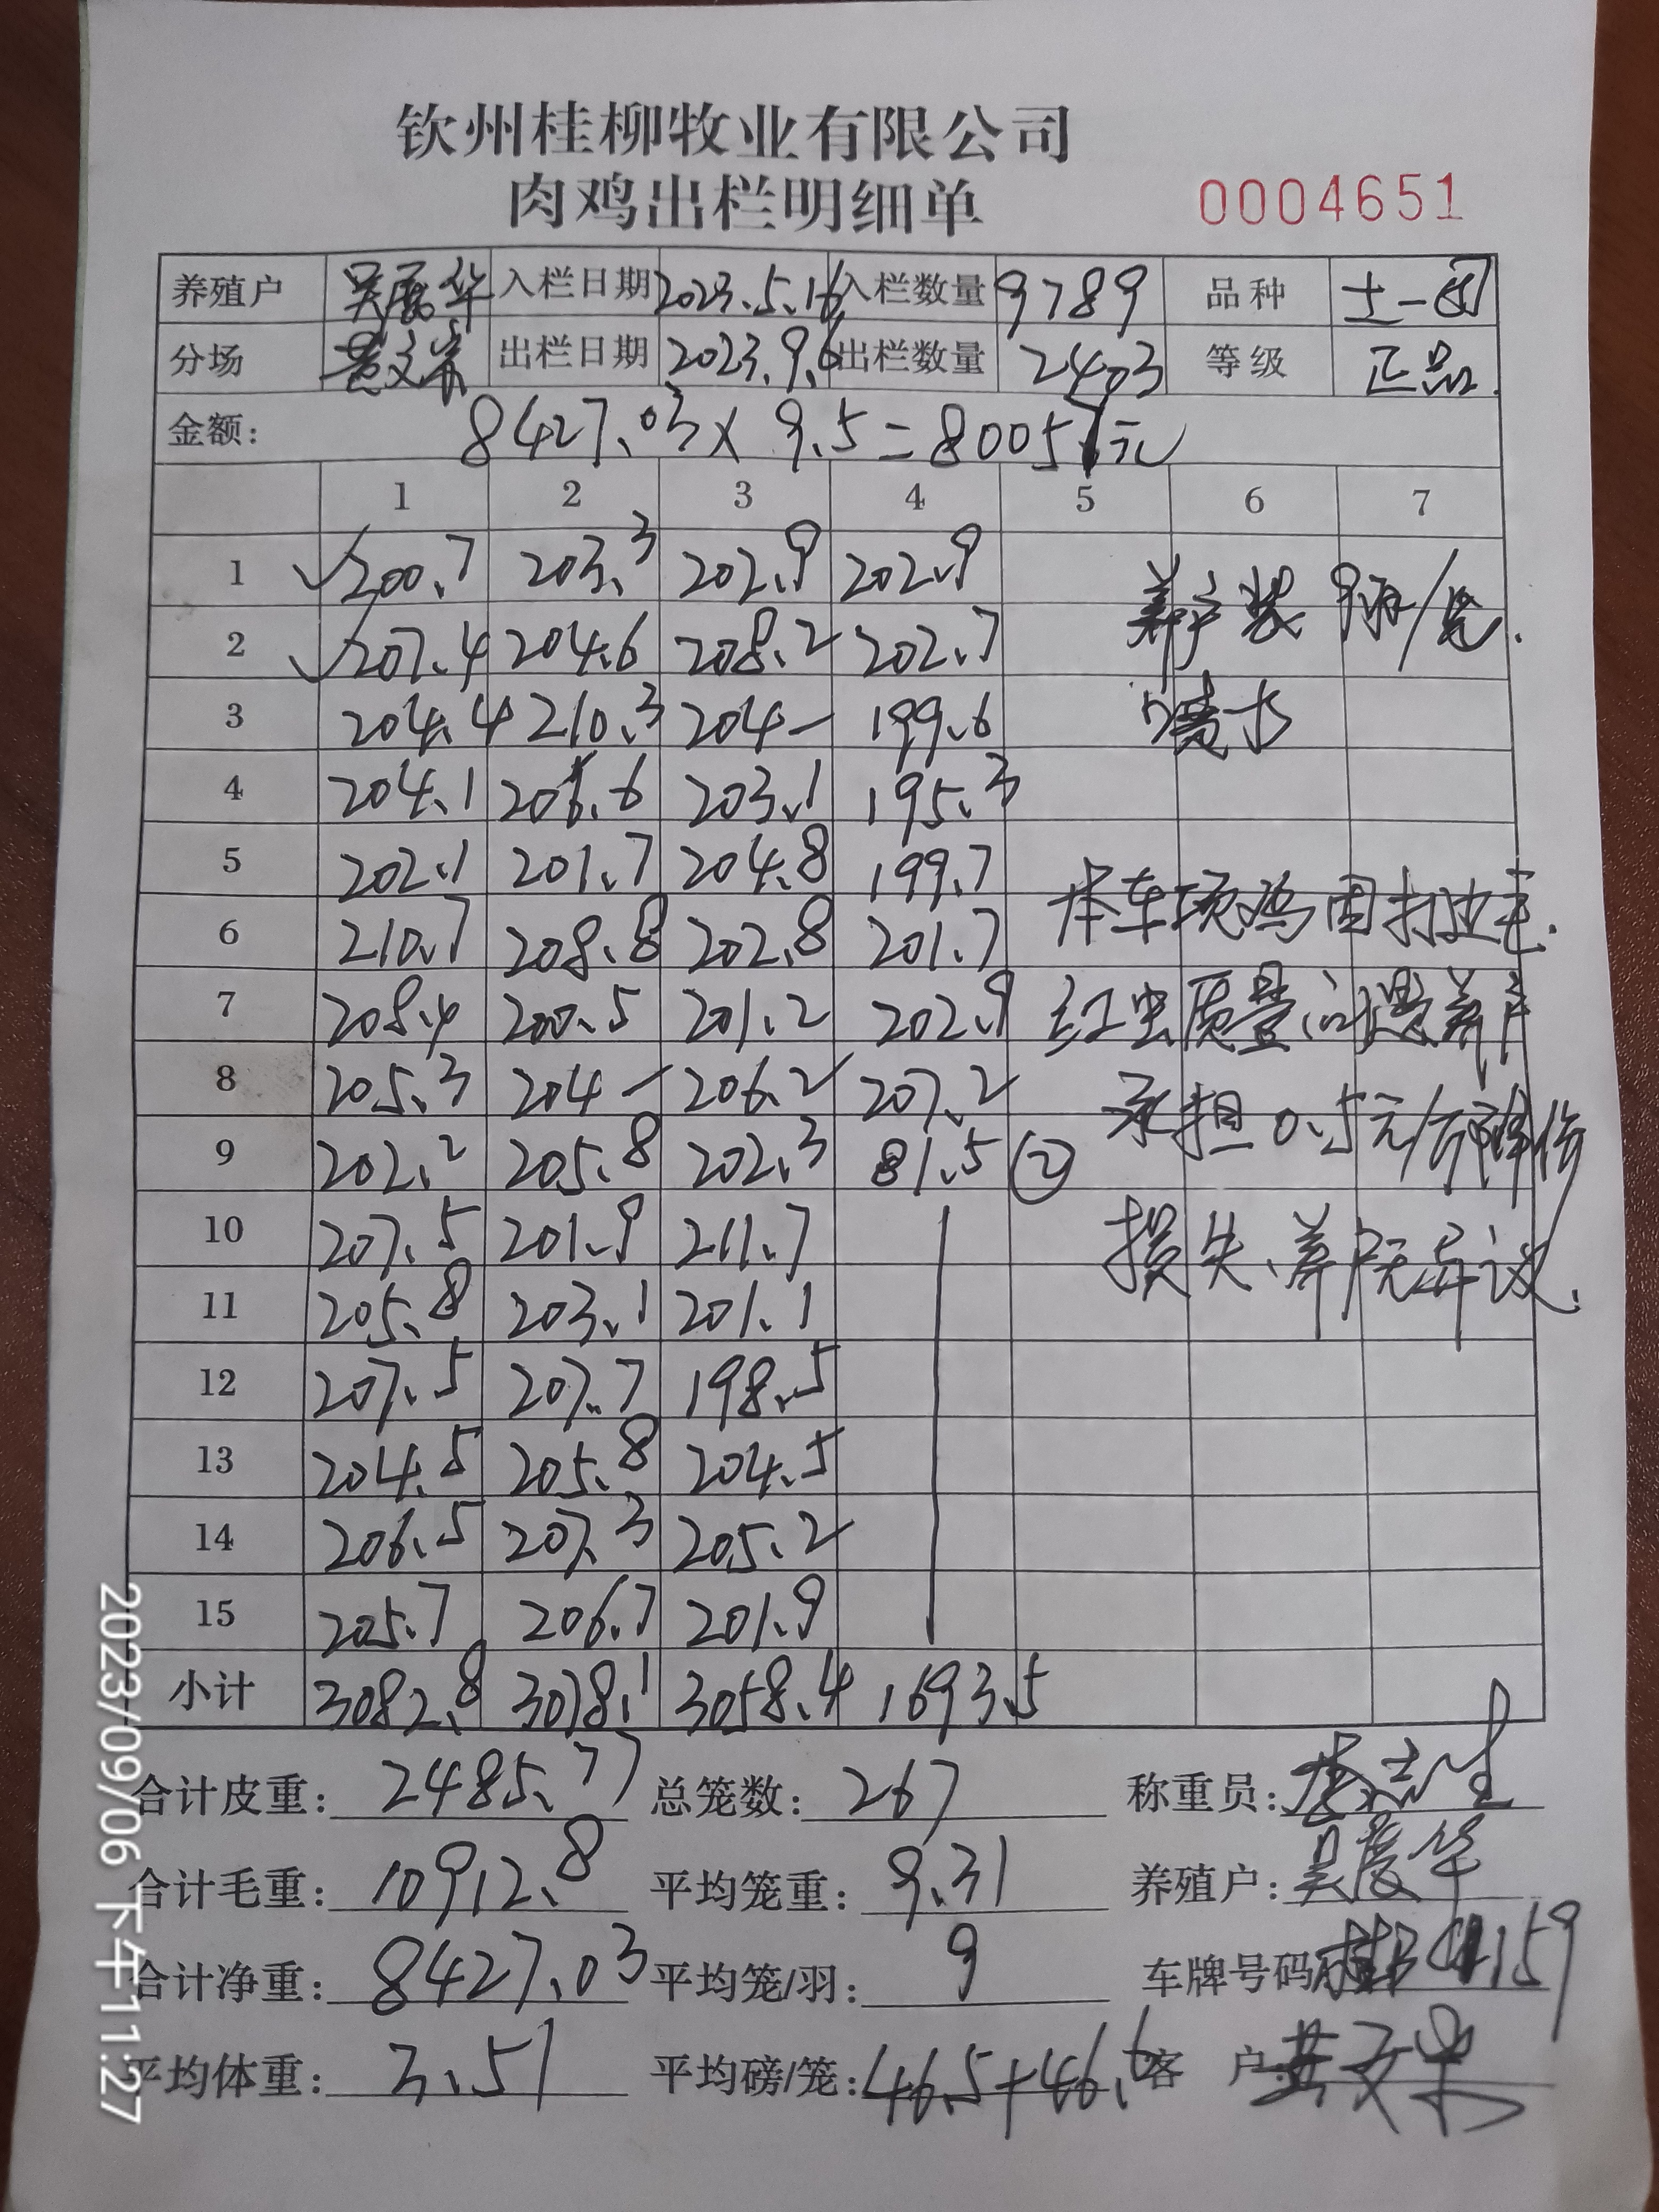 钦州桂柳牧业有限公司
肉鸡出栏明细单 0004651
养殖户 入栏日期 2023.5.16 入栏数量 9789 品种 土一
分场 出栏日期 2023.9.6 出栏数量 2403 等级 正品.
金额: 8427.03 × 9.5 = 80057元
1 2 3 4 5 6 7
1 ✓200.7 203.3 202.9 202.9 养户装 9羽/笼.
2 ✓207.4 204.6 208.2 202.7
3 204.4 210.3 204— 199.6
4 204.1 206.6 203.1 195.3
5 202.1 201.7 204.8 199.7
6 210.7 208.8 202.8 201.7 本车项鸡因 毛.
7 208.4 200.5 201.2 202.9 红虫质量问题养户
8 205.3 204— 206.2 207.2 承担0.5元/斤降价
9 202.2 205.8 202.3 81.5 ②
10 207.5 201.9 211.7 损失、养户无异议.
11 205.8 203.1 201.1
12 207.5 207.7 198.5
13 204.5 205.8 204.5
14 206.5 207.3 205.2
15 205.7 206.7 201.9
小计 3082.8 3078.1 3058.4 1693.5
合计皮重: 2485.77 总笼数: 267 称重员:
合计毛重: 10912.8 平均笼重: 9.31 养殖户:
合计净重: 8427.03 平均笼/羽: 9 车牌号码
平均体重: 3.51 平均磅/笼: 46.5+46.6 客 户
2023/09/06 下午11:27